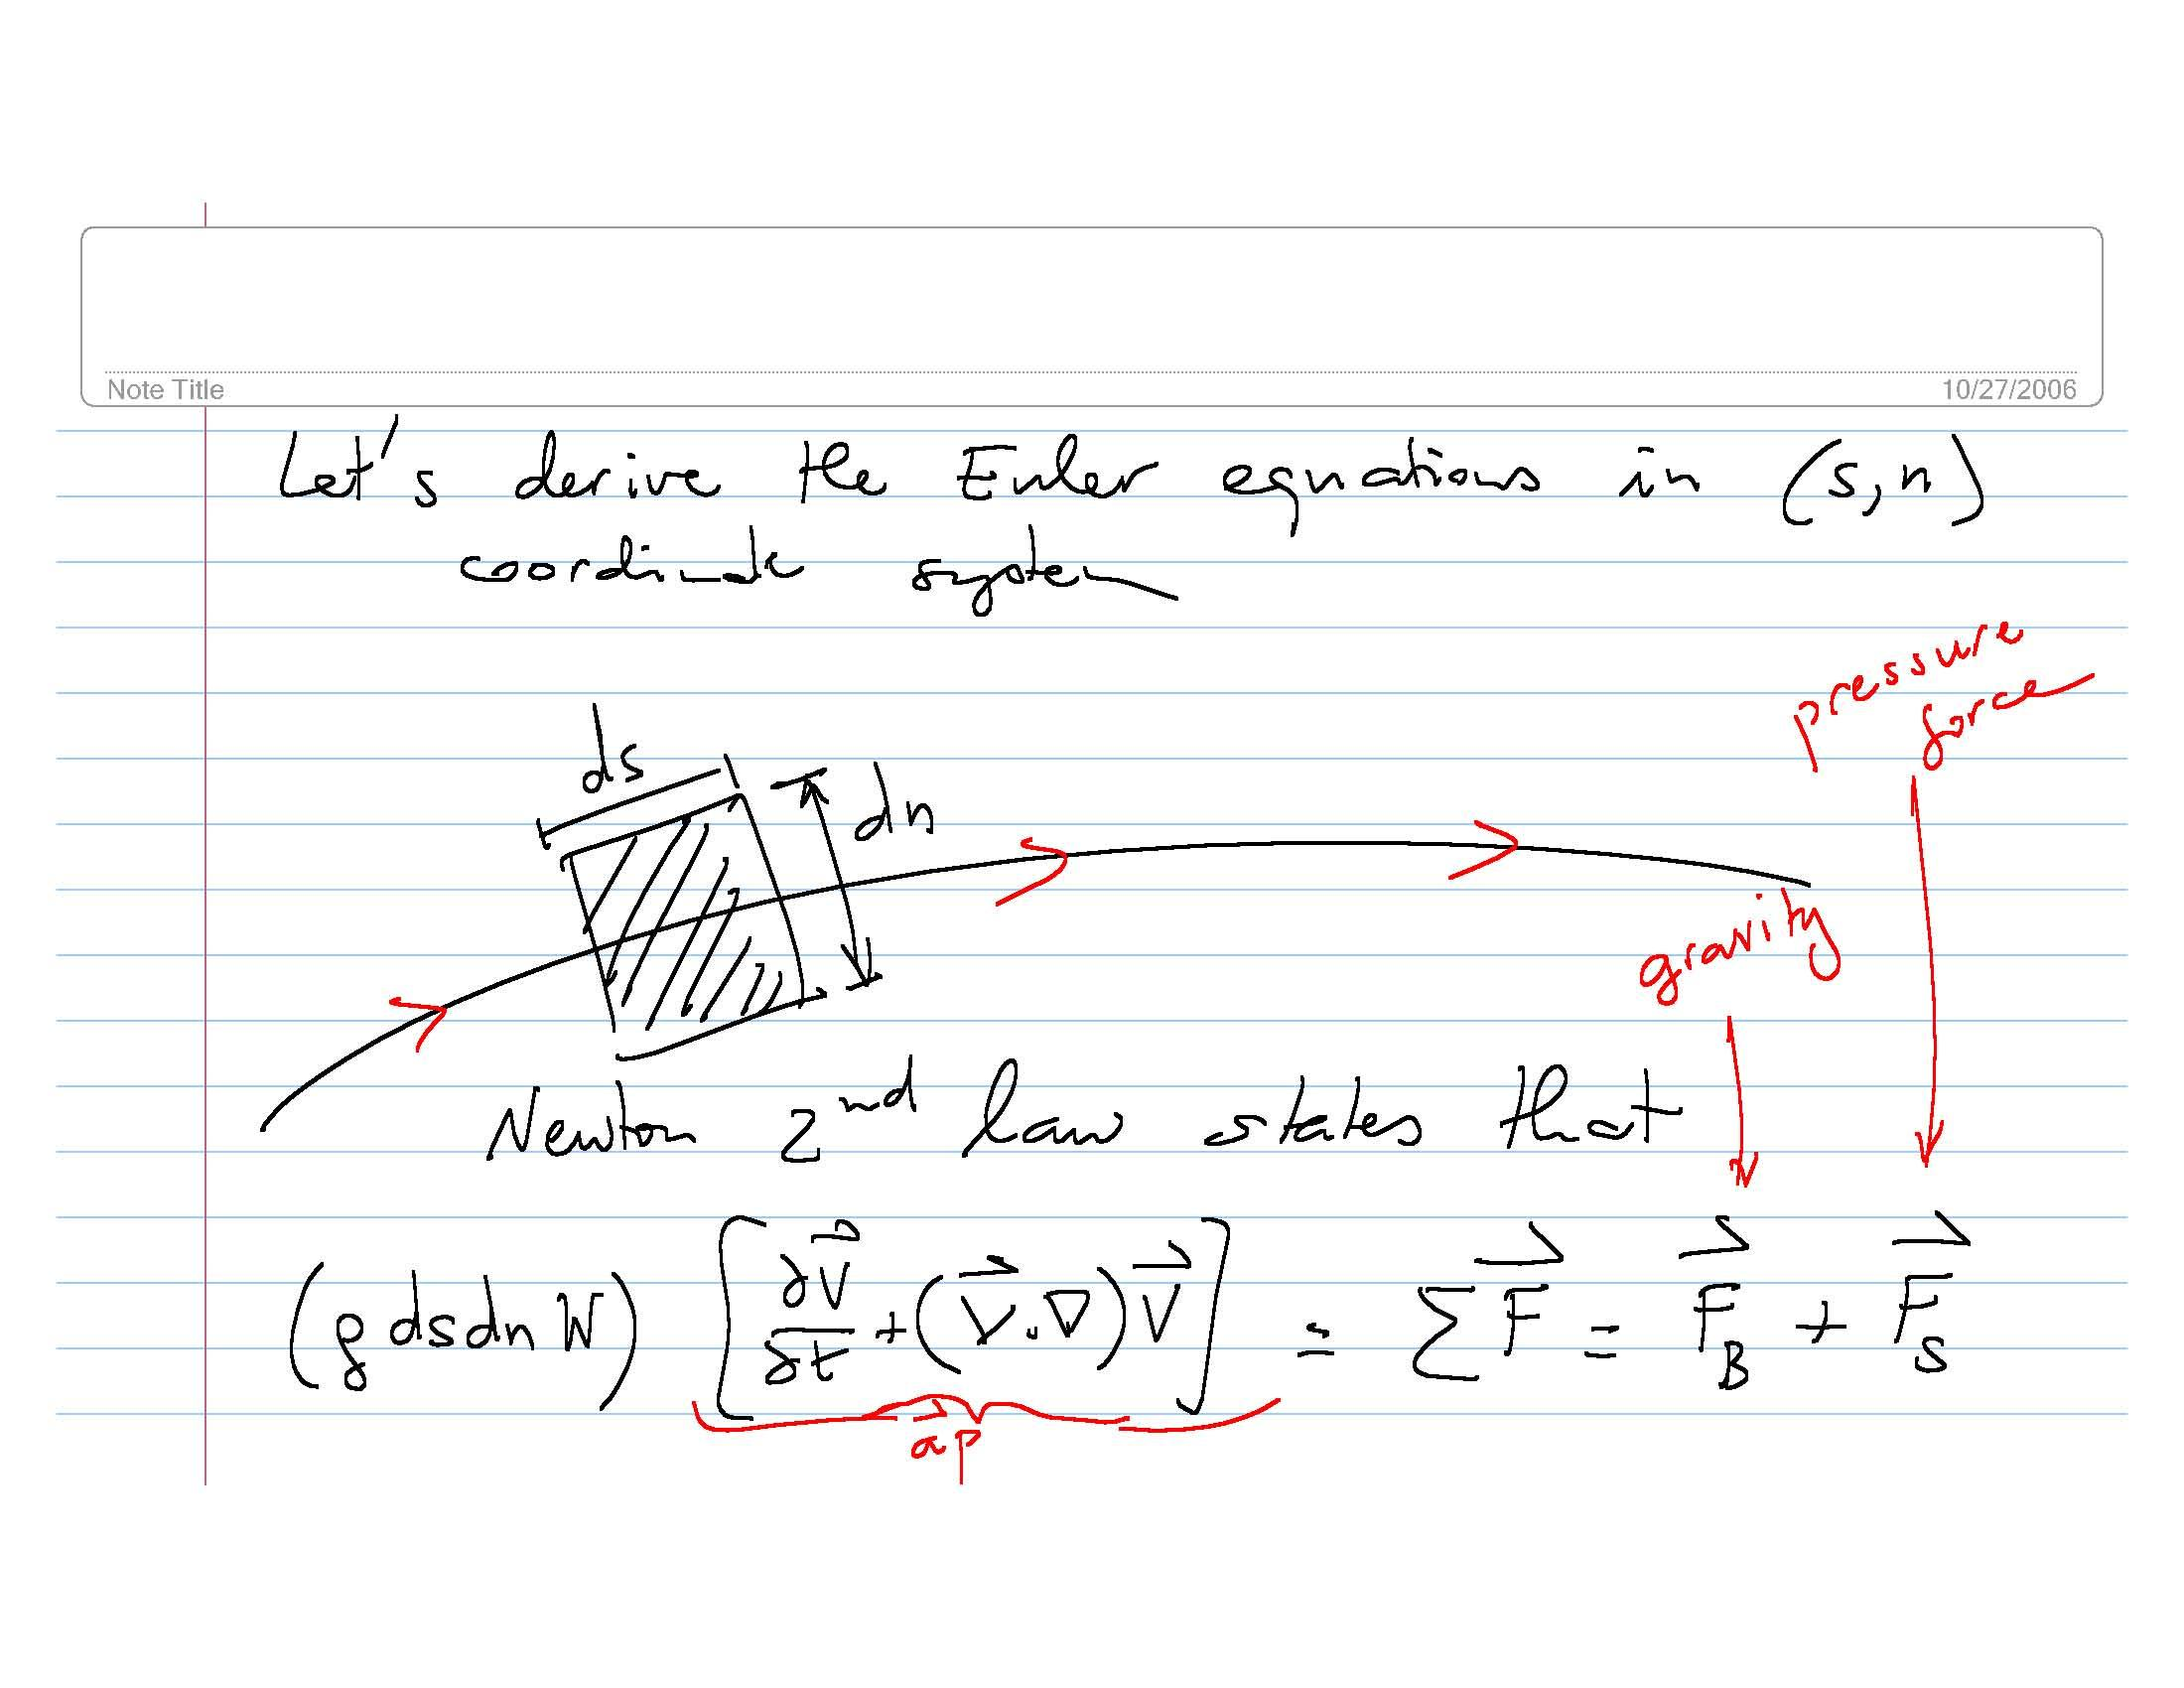 Note Title
10/27/2006
Let's derive the Euler equations in (s,n)
coordinate system
pressure
force
ds
dn
gravity
Newton 2nd law states that
(ρ ds dn W) [∂V⃗/∂t + (V⃗.∇)V⃗] = ΣF⃗ = F⃗_B + F⃗_S
a⃗p